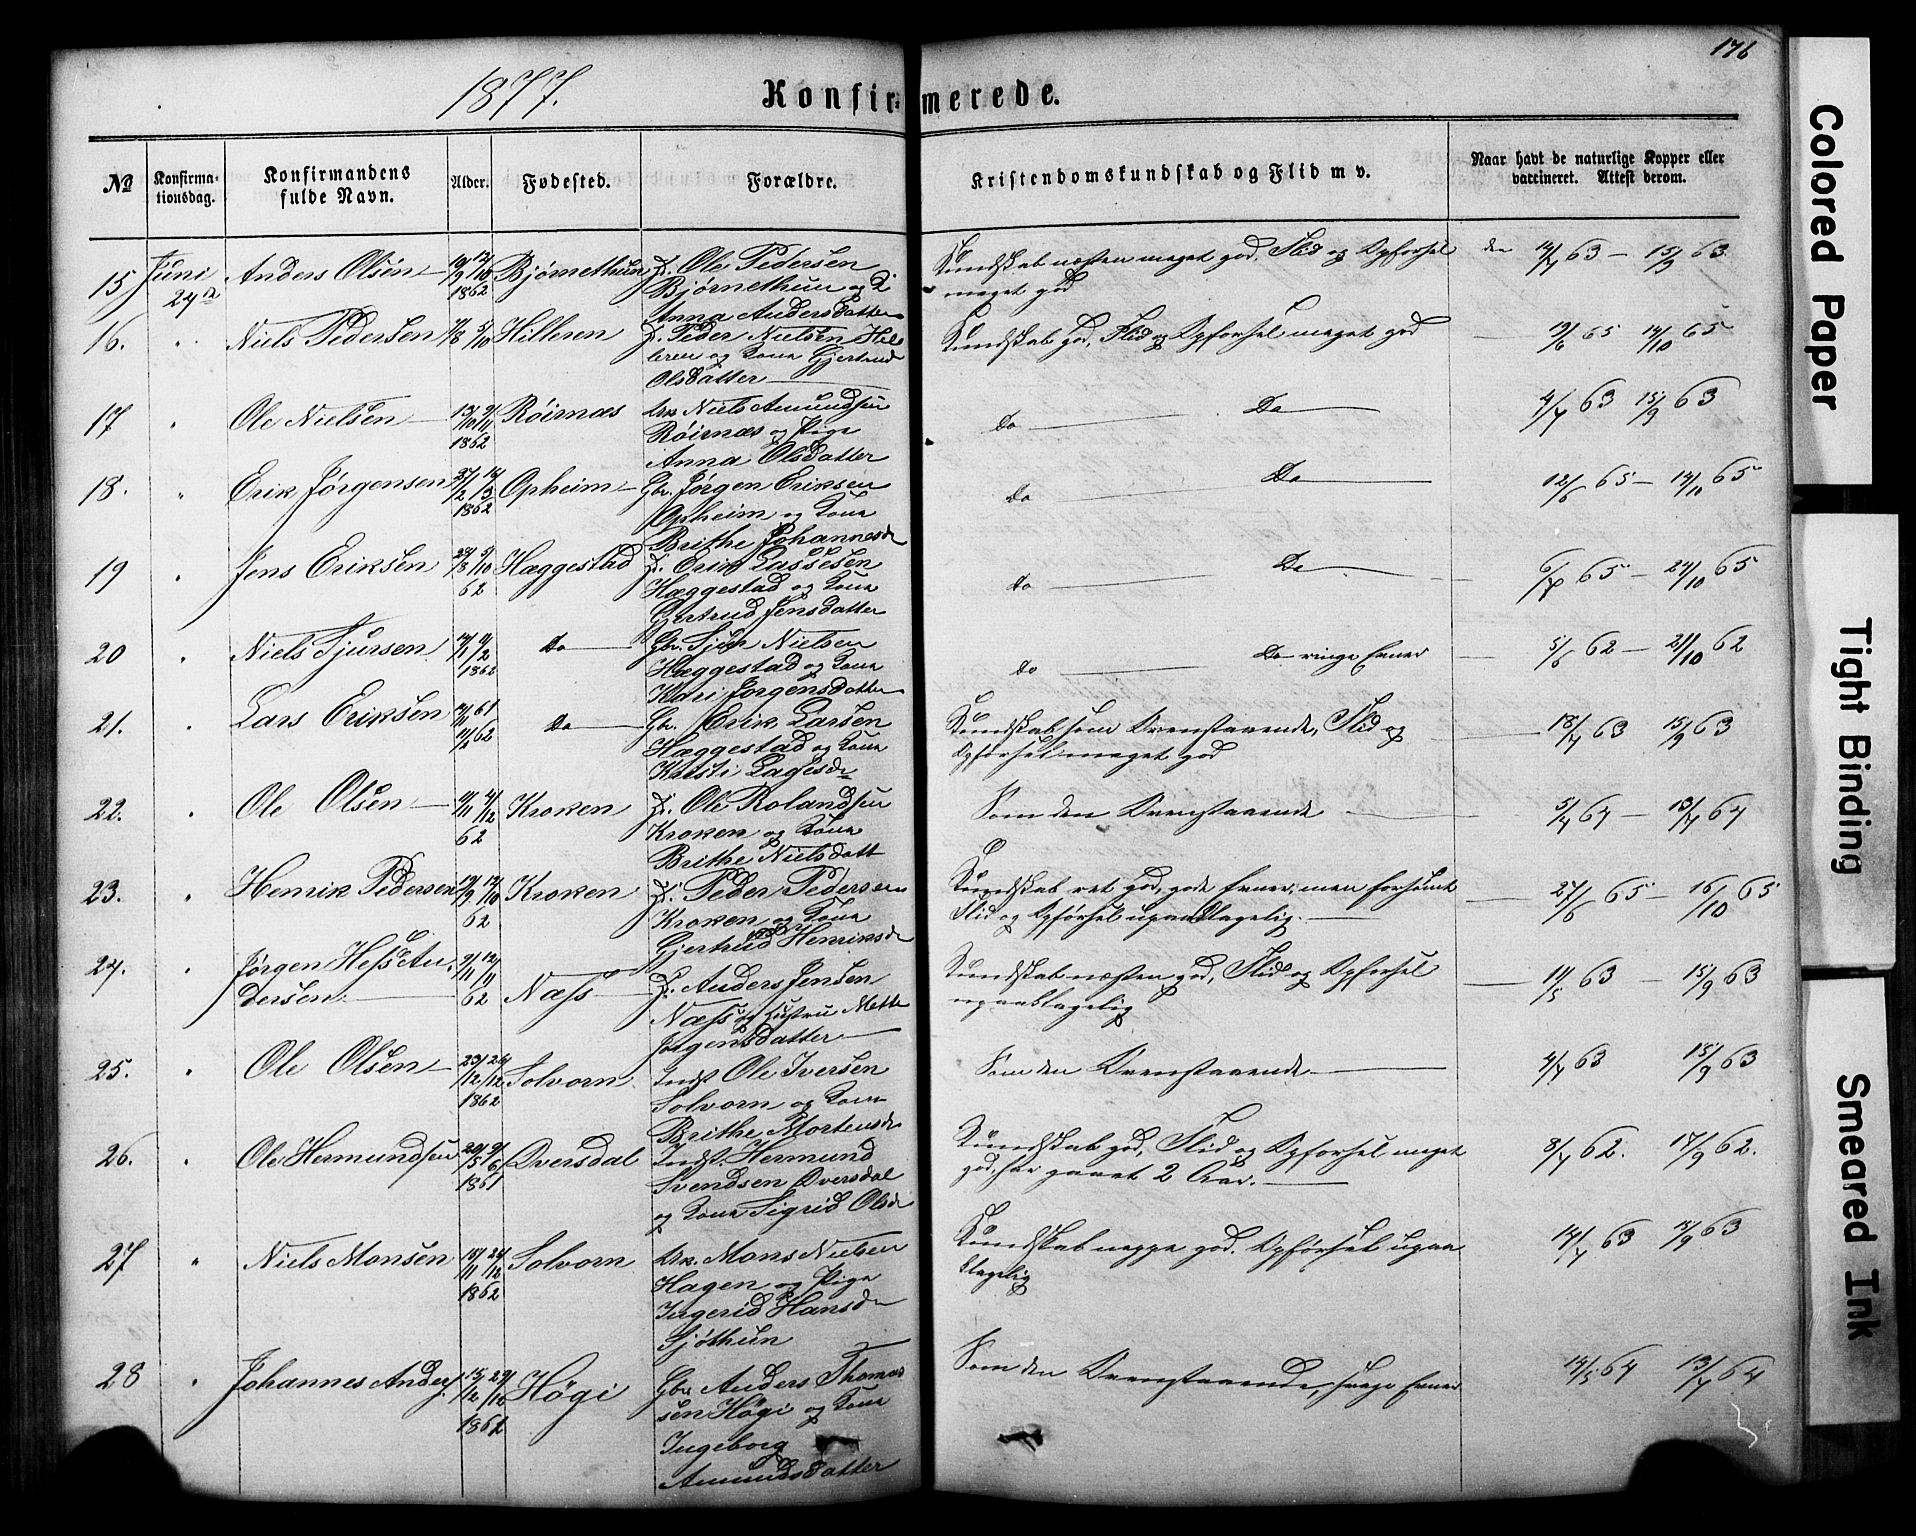 176
1877.
Konfirmerede.
No
Konfirmationsdag.
Konfirmandens fulde Navn.
Alder.
Fødested.
Forældre.
Kristendomskundskab og Flid m v.
Naar havt de naturlige Kopper eller vaccineret. Attest derom.
15 Juni 24de Anders Olsen 19/9 12/10 1862 Bjørnethun F. Ole Pedersen
Bjørnethun og K
Anna Andersdatter
Kundskab næsten meget god. Flid og Opførsel
meget god
den 14/7 63 — 15/9 63
16. " Niels Pedersen 5/10 Hilleren F. Peder Nielsen Hil
leren og Kone Gjertrud
Olsdatter
Kundskab god, Flid og Opførsel meget god
— 19/6 65 14/10 65
17 " Ole Nielsen 13/10 9/11 1862 Røirnæs Urk. Niels Amundsen
Røirnæs og Pige
Anna Olsdatter
Do — Do —
4/7 63 15/9 63
18. " Erik Jørgensen 27/2 16/3 1862 Opheim Gbr. Jørgen Eriksen
Opheim og Kone
Brithe Johannesd
Do — Do —
12/6 65 — 14/10 65
19 " Jens Eriksen 28/8 5/10 62 Hæggestad F. Erik Lassesen
Hæggestad og Kone
Gjertrud Jensdatter
Do — Do —
6/7 65 — 24/10 65
20 " Niels Sjursen 1862 Do Gbr. Sjur Nielsen
Hæggestad og Kone
Kari Jørgensdatter
Do — Do ringe Evner
— 5/6 62 — 21/10 62
21. " Lars Eriksen 61 62 Do Gbr. Erik Larsen
Hæggestad og Kone
Kristi Lassesd
Kundskab som Ovenstaaende, Flid og
Opførsel meget god
— 18/7 63 15/9 63
22. " Ole Olsen 62 Kroken F. Ole Rolandsen
Kroken og Kone
Brithe Nielsdatt
Som den Ovenstaaende —
5/7 64 — 13/7 64
23. " Henrik Pedersen 19/9 12/10 62 Kroken F. Peder Pedersen
Kroken og Kone
Gjertrud Henriksd
Kundskab ret god, gode Evner, men forsømt
Flid og Opførsel upaaklagelig. —
— 27/6 65 — 16/10 65
24. " Jørgen Hess An
dersen 9/11 62 Næss F. Anders Jensen
Næss og Hustru Mette
Jørgensdatter
Kundskab næsten god, Flid og Opførsel
upaaklagelig
— 11/5 63 — 15/9 63
25. " Ole Olsen 23/12 26/12 1862 Solvorn Indst Ole Iversen
Solvorn og Kone
Brithe Mortensd
Som den Ovenstaaende —
4/7 63 15/9 63
26. " Ole Hermundsen 20/5 9/6 1861 Qversdal Indst. Hermund
Svendsen Qversdal
og Kone Sigrid Olsd
Kundskab god, Flid og Opførsel meget
god, har gaaet 2 Aar. —
8/7 62. 17/9 62.
27 " Niels Monsen 1862 Solvorn Urk. Mons Nielsen
Hagen og Pige
Ingerid Hansd
Sjøthun
Kundskab neppe god. Opførsel upaa
klagelig
14/7 63 15/9 63
28 " Johannes Anders. 15/12 29/12 1862 Høgi Gbr Anders Thomas
sen Høgi og Kone
Ingeborg
Amundsdatter
Som den Ovenstaaende, svage Evner
14/5 64 13/7 64
Colored Paper
Tight Binding
Smeared Ink